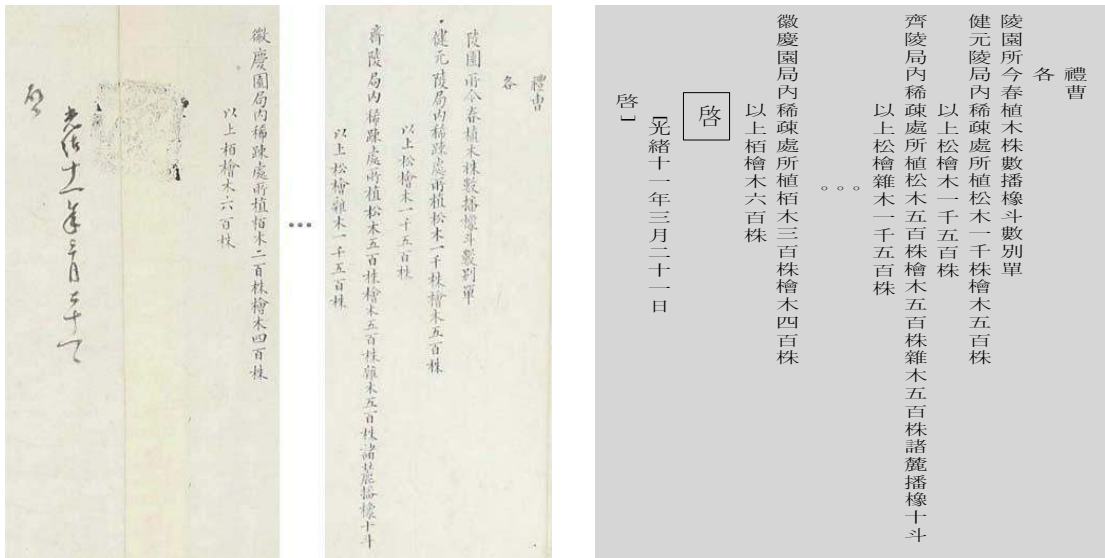 禮曹
各
陵園所今春植木株數播橡斗數別單
健元陵局內稀踈處所植松木一千株檜木五百株
以上松檜木一千五百株
齊陵局內稀踈處所植松木五百株檜木五百株雜木五百株諸麓播橡十斗
以上松檜雜木一千五百株
•••
徽慶園局內稀踈處所植栢木二百株檜木四百株
以上栢檜木六百株
光緒十一年三月二十一日
啓
禮曹
各
陵園所今春植木株數播橡斗數別單
健元陵局內稀疎處所植松木一千株檜木五百株
以上松檜木一千五百株
齊陵局內稀疎處所植松木五百株檜木五百株雜木五百株諸麓播橡十斗
以上松檜雜木一千五百株
。。。
徽慶園局內稀疎處所植栢木三百株檜木四百株
以上栢檜木六百株
啓
[光緒十一年三月二十一日
啓]